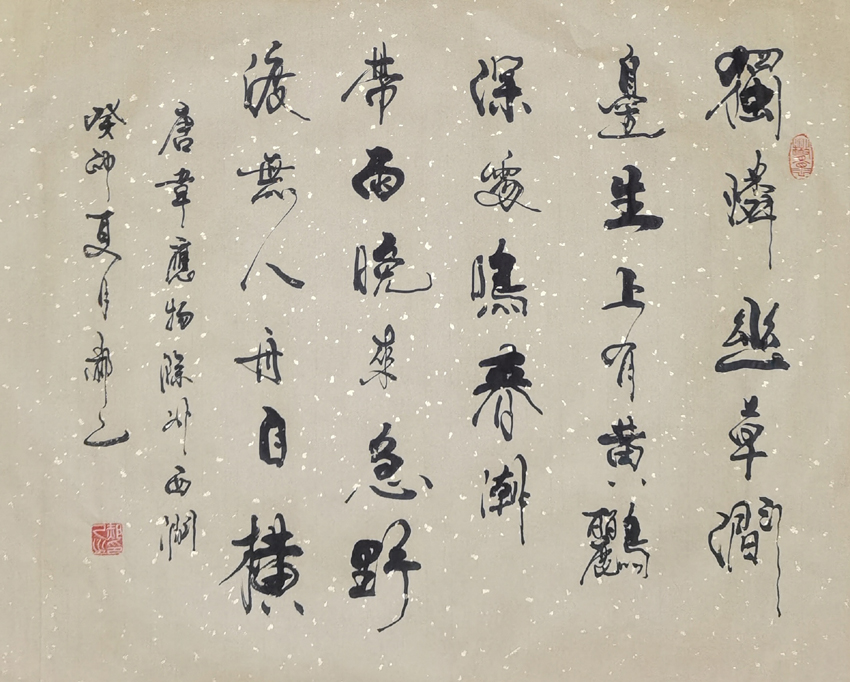 獨憐幽草澗
邊生上有黃鸝
深處鳴春潮
帶雨晚來急野
渡無人舟自橫
唐韋應物滁州西澗
癸卯夏月